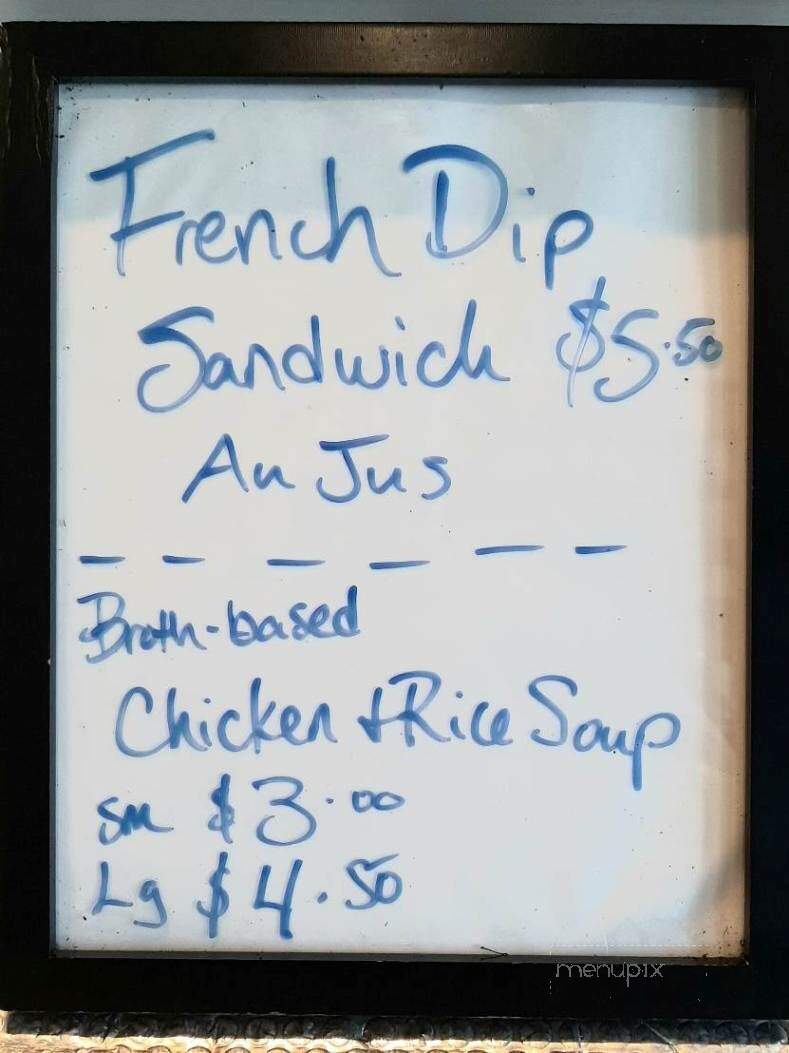 French Dip
Sandwich $5.50
Au Jus
Broth-based
Chicken + Rice Soup
sm $3.00
Lg $4.50
menupix